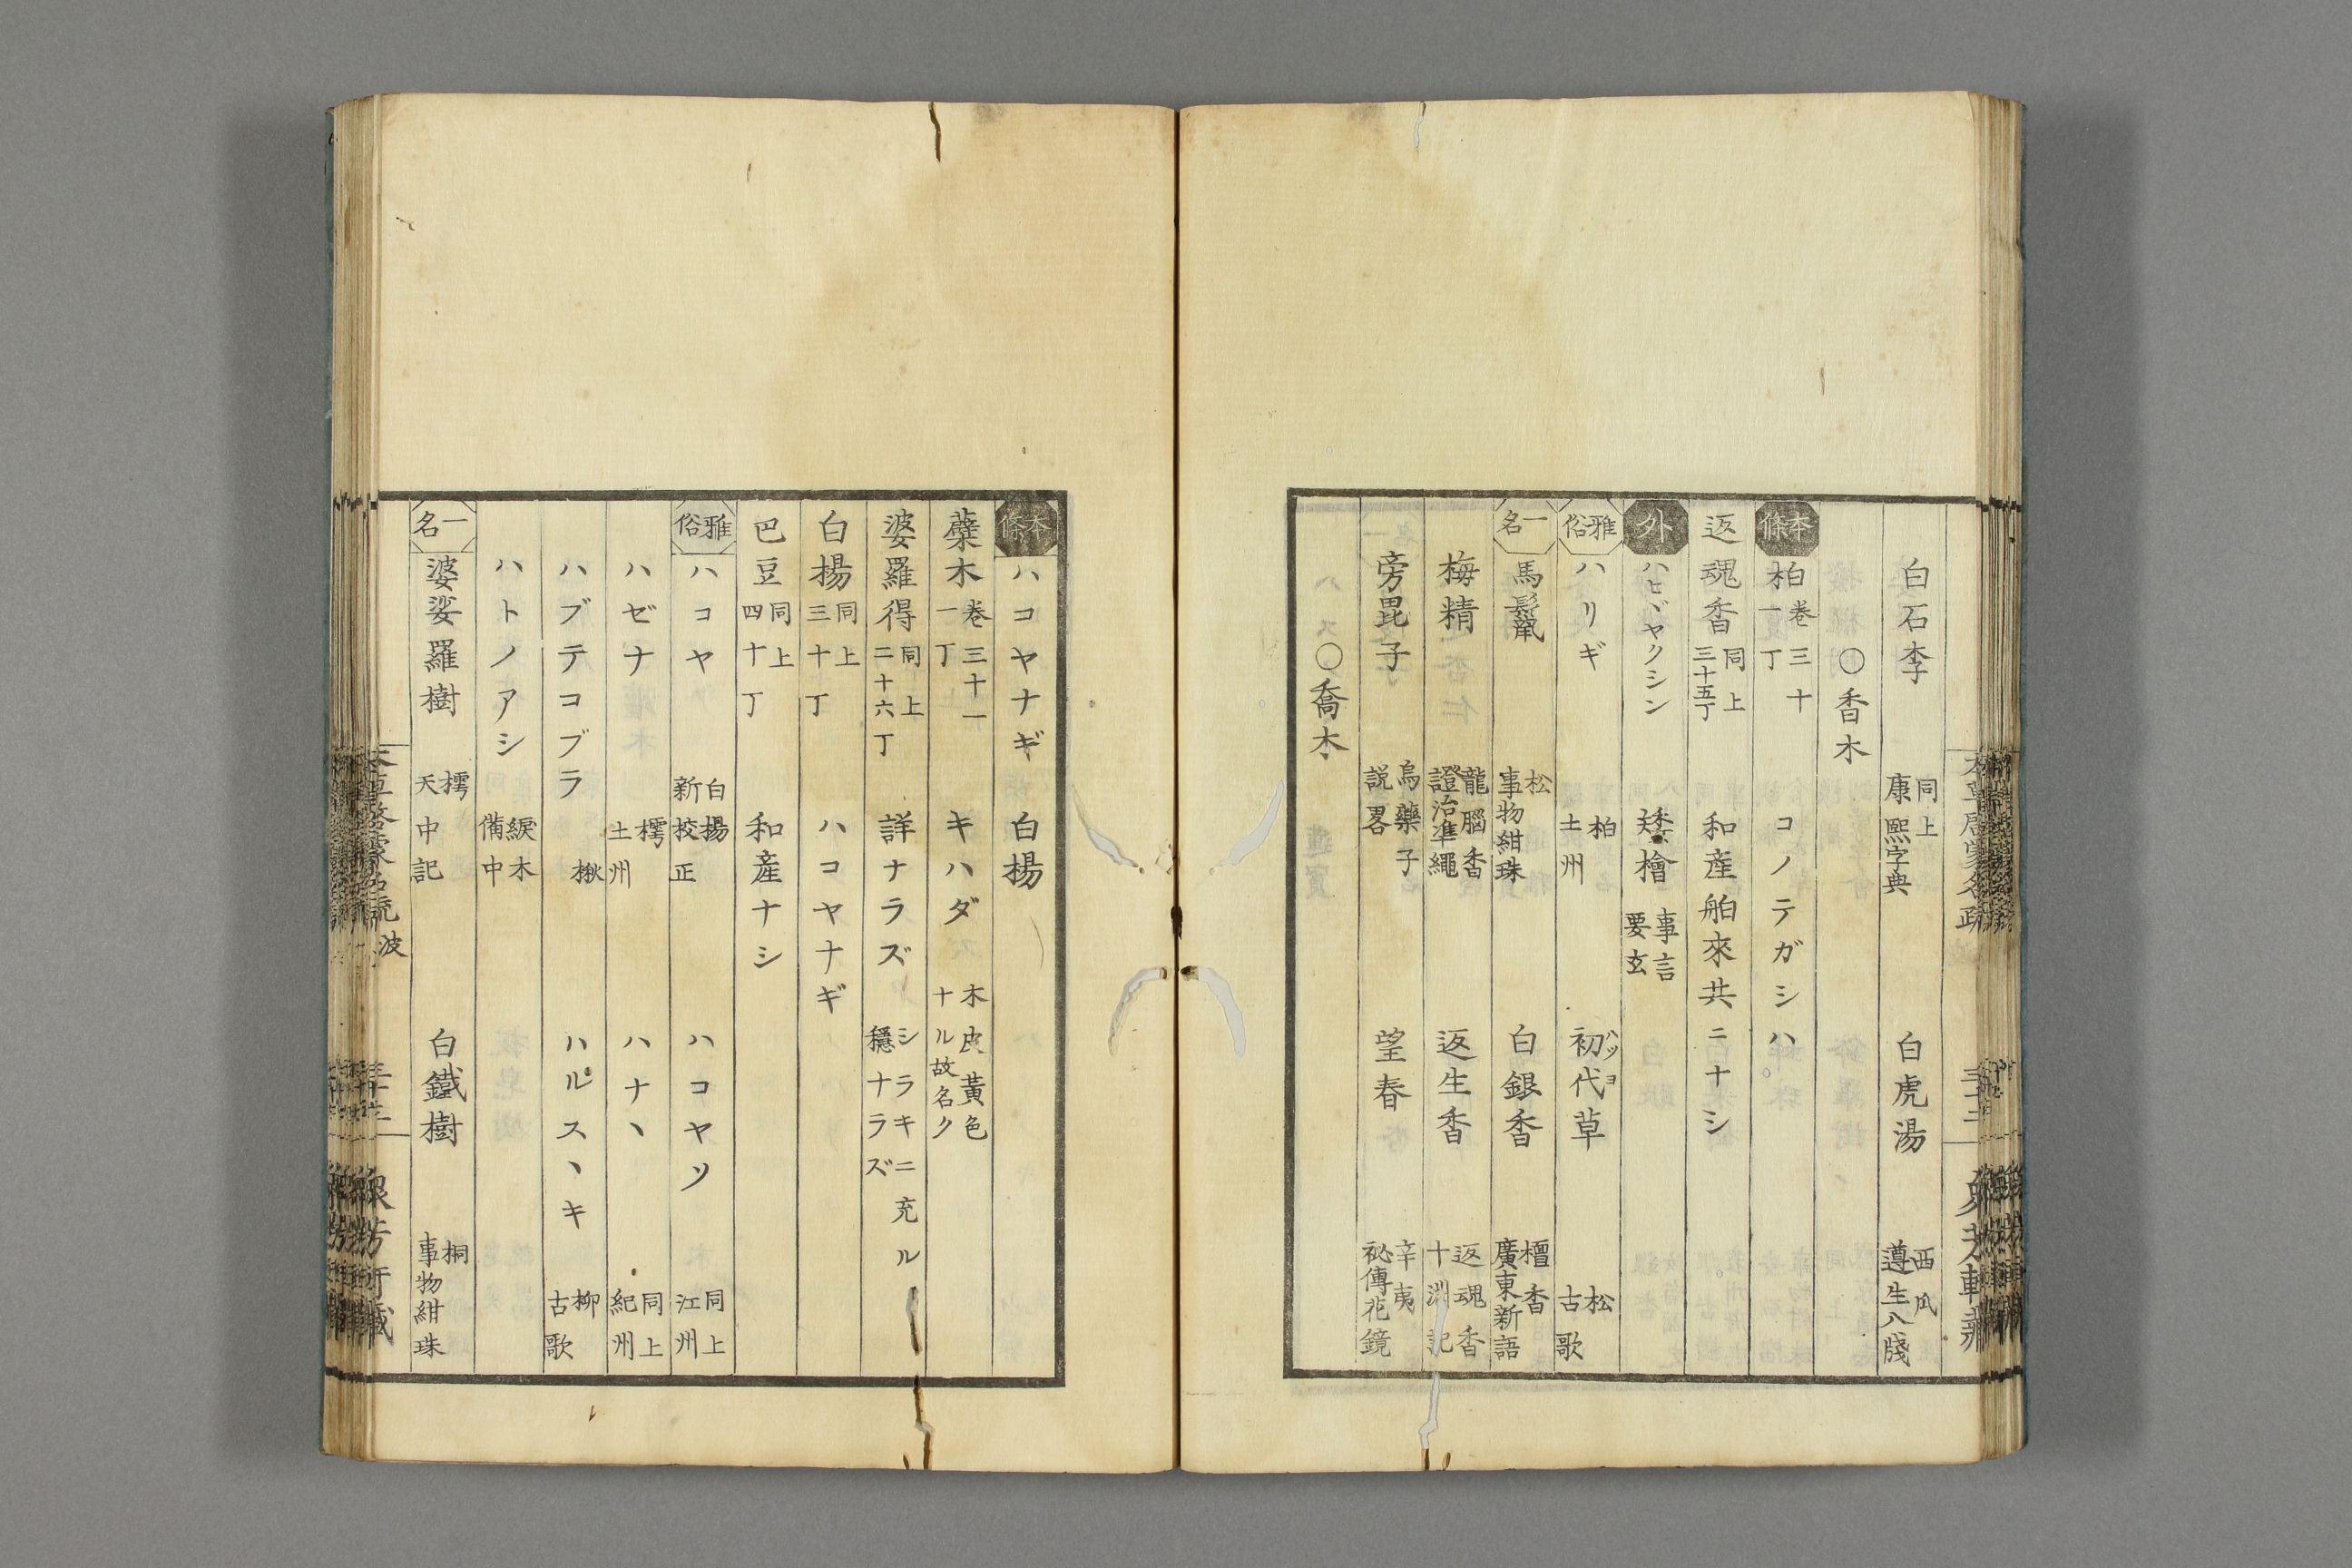 白石李 同上 康熙字典 白虎湯 西瓜 遵生八牋
○香木
本條 柏 卷三十 一丁 コノテガシハ
返魂香 同上 三十五丁 和産舶來共ニナシ
外 ハヒヾヤクシン 矮檜 事言要玄
雅俗 ハリギ 柏 土州 初代草 ハツヨ 松 古歌
一名 馬鬣 松 事物紺珠 白銀香 檀香 廣東新語
梅精 龍腦香 證治準繩 返生香 返魂香 十洲記
旁毘子 烏藥子 説畧 望春 辛夷 祕傳花鏡
○喬木
本條 ハコヤナギ 白楊
蘗木 卷三十一 一丁 キハダ 木皮黃色ナル故名ク
婆羅得 同上 二十六丁 詳ナラズ シラキニ充ル穩ナラズ
白楊 同上 三十丁 ハコヤナギ
巴豆 同上 四十丁 和産ナシ
雅俗 ハコヤ 白楊 新校正 ハコヤツ 同上 江州
ハゼナ 樗 土州 ハナヽ 同上 紀州
ハブテコブラ 楸 ハルスヽキ 柳 古歌
ハトノアシ 綟木 備中
一名 婆娑羅樹 樗 天中記 白鐵樹 桐 事物紺珠
波